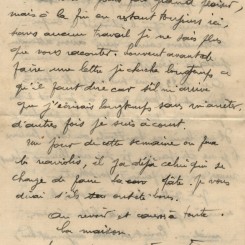 mais à la fin en restant toujours ici,
sans aucun travail je ne sais plus
que vous raconter. Souvent avant de
faire une lettre je cherche longtemps ce
qu'il faut dire car s'il m'arrive
que j'écrirais longtemps sans m'arrêter,
d'autre fois je suis à court.
Un jour de cette semaine on fera
la raviolis, il y a déjà celui qui se
charge de faire la pâte. Je vous
dirai s'ils ont été bons.
Au revoir et à toute
la maison.